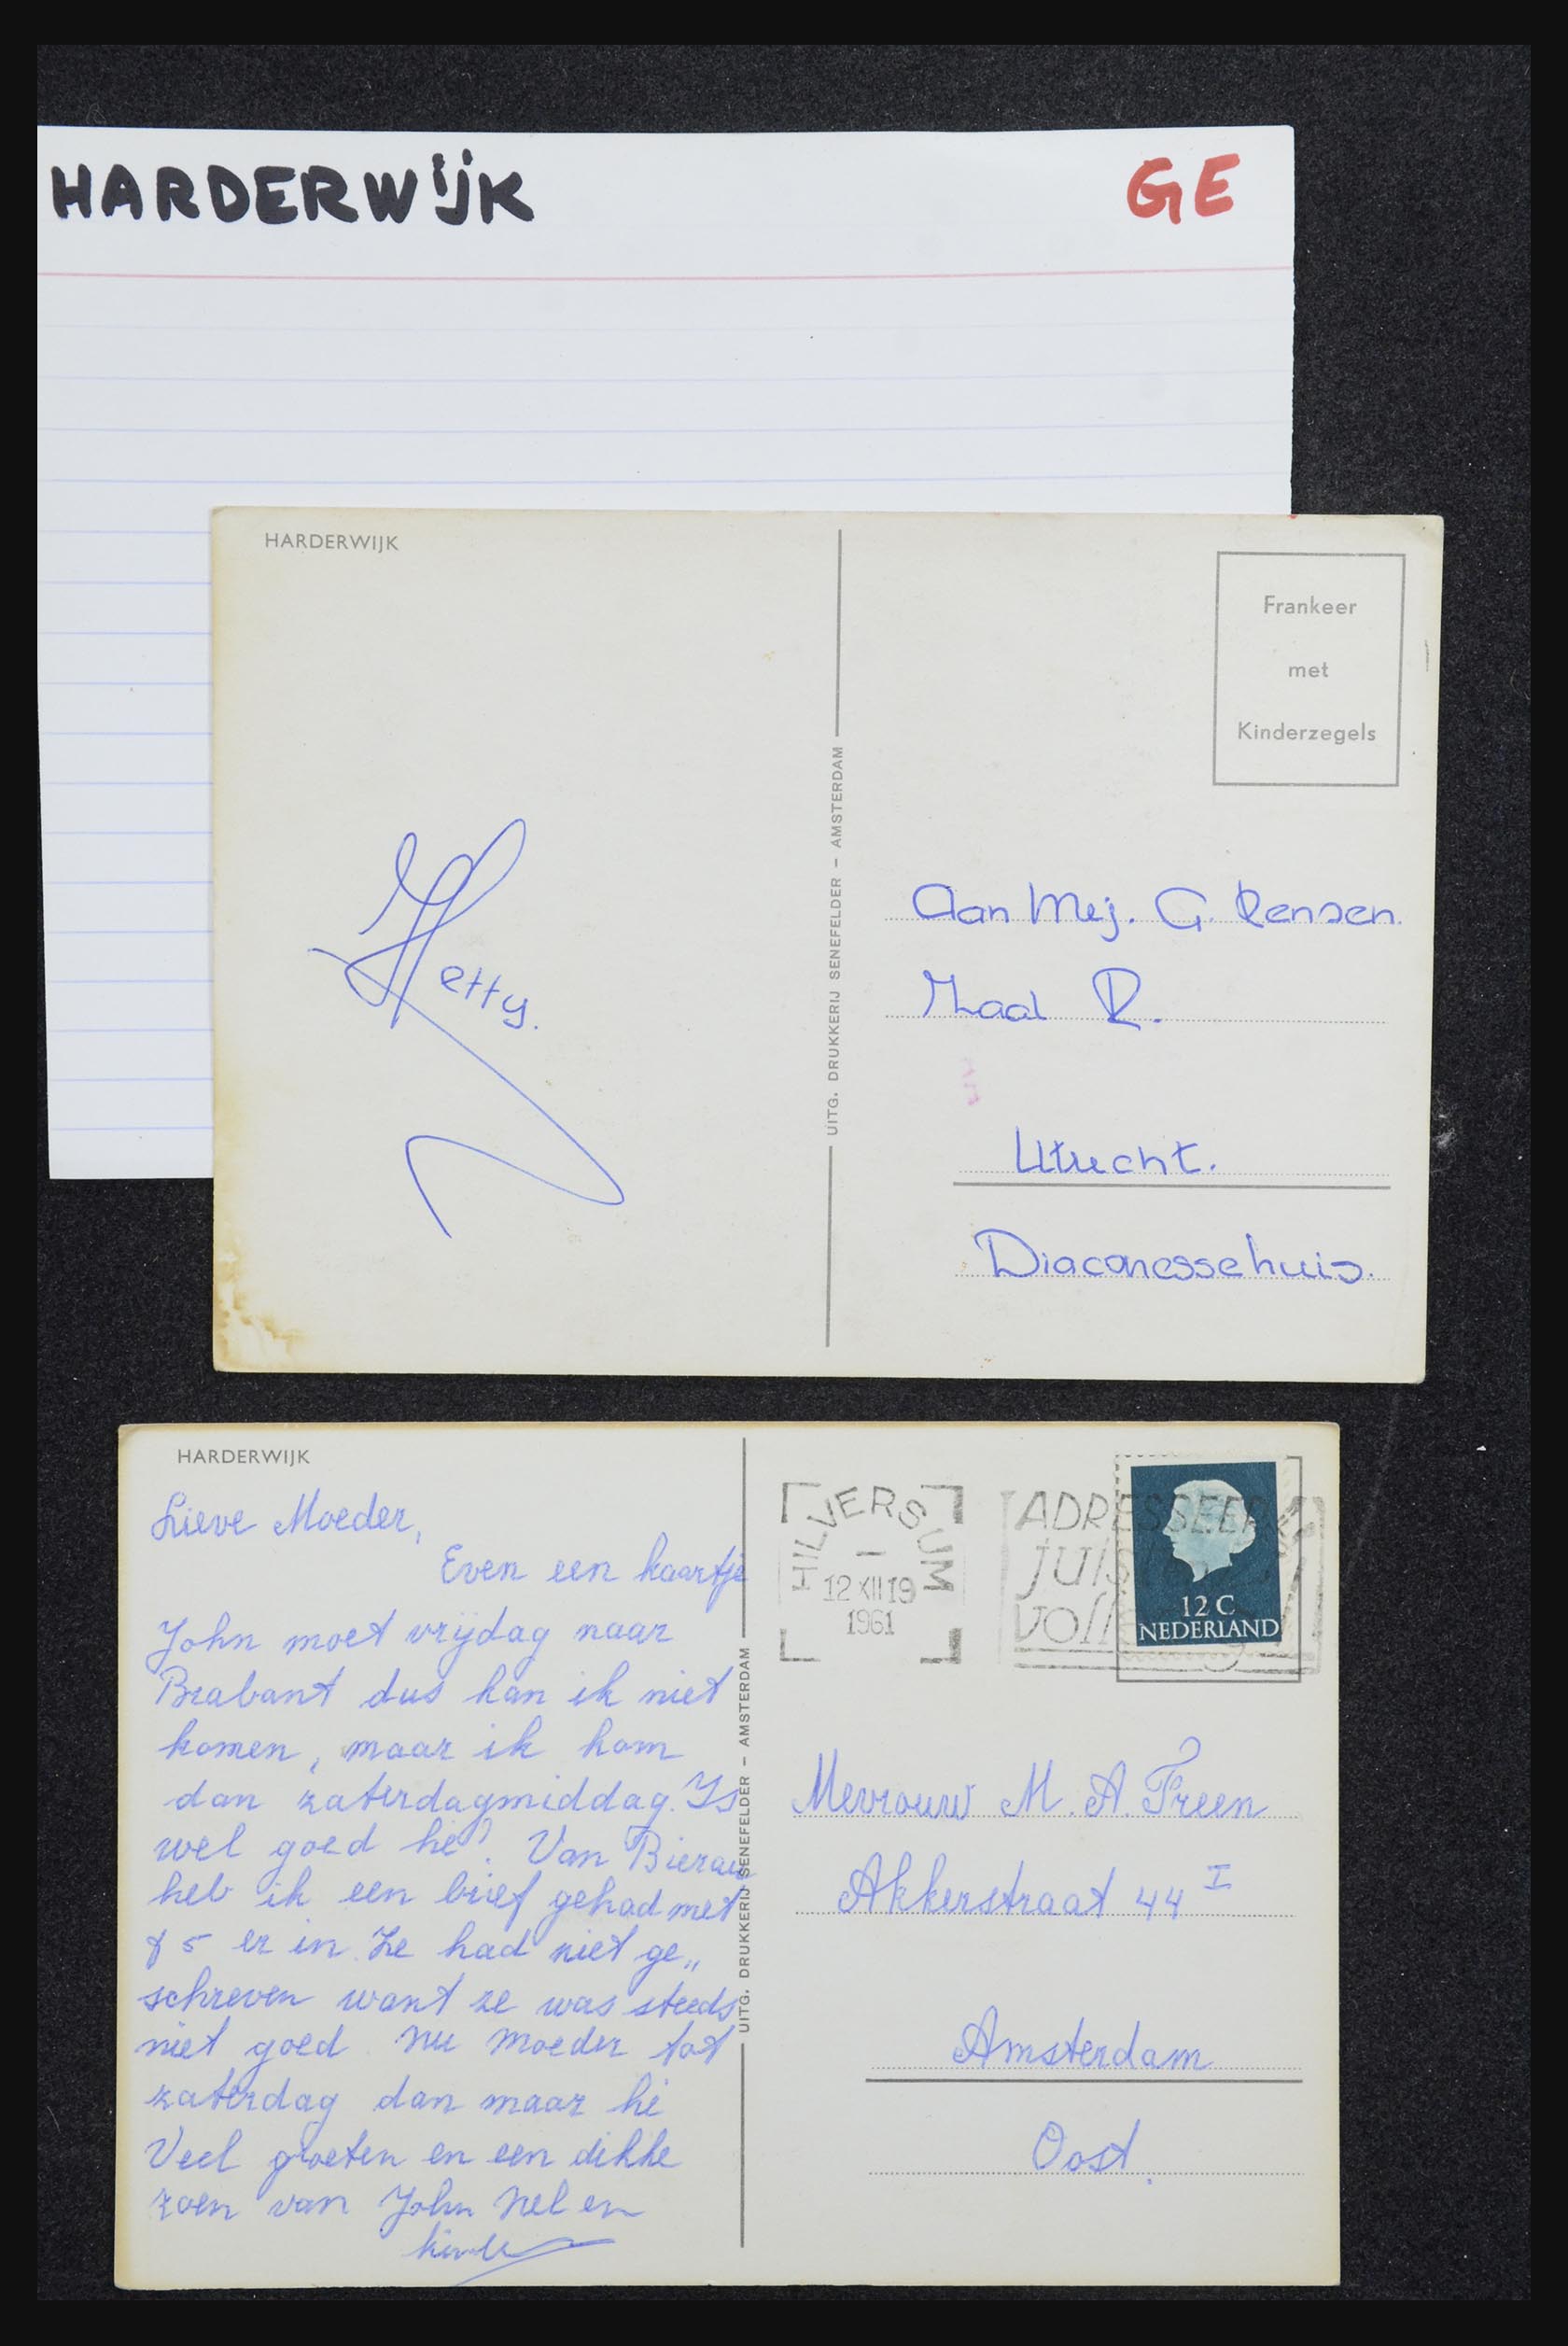 HARDERWIJK GE
HARDERWIJK
Frankeer
met
Kinderzegels
Hetty.
UITG. DRUKKERIJ SENEFELDER – AMSTERDAM
Aan Mej. G. Rensen.
Zaal R.
Utrecht.
Diaconessehuis.
HARDERWIJK
Lieve Moeder,
Even een kaartje
John moet vrijdag naar
Brabant dus kan ik niet
komen, maar ik kom
dan zaterdagmiddag. Is
wel goed hé? Van
heb ik een brief gehad met
f 5 er in. Ze had niet ge„
schreven want ze was steeds
niet goed. Nu Moeder tot
zaterdag dan maar hé
Veel groeten en een dikke
zoen van John Nel en
UITG. DRUKKERIJ SENEFELDER – AMSTERDAM
HILVERSUM
12 XII 19
1961
ADRESSEER
JUIS
VOLL
12 C
NEDERLAND
Mevrouw M. A. Treen
Akkerstraat 44 I
Amsterdam
Oost.